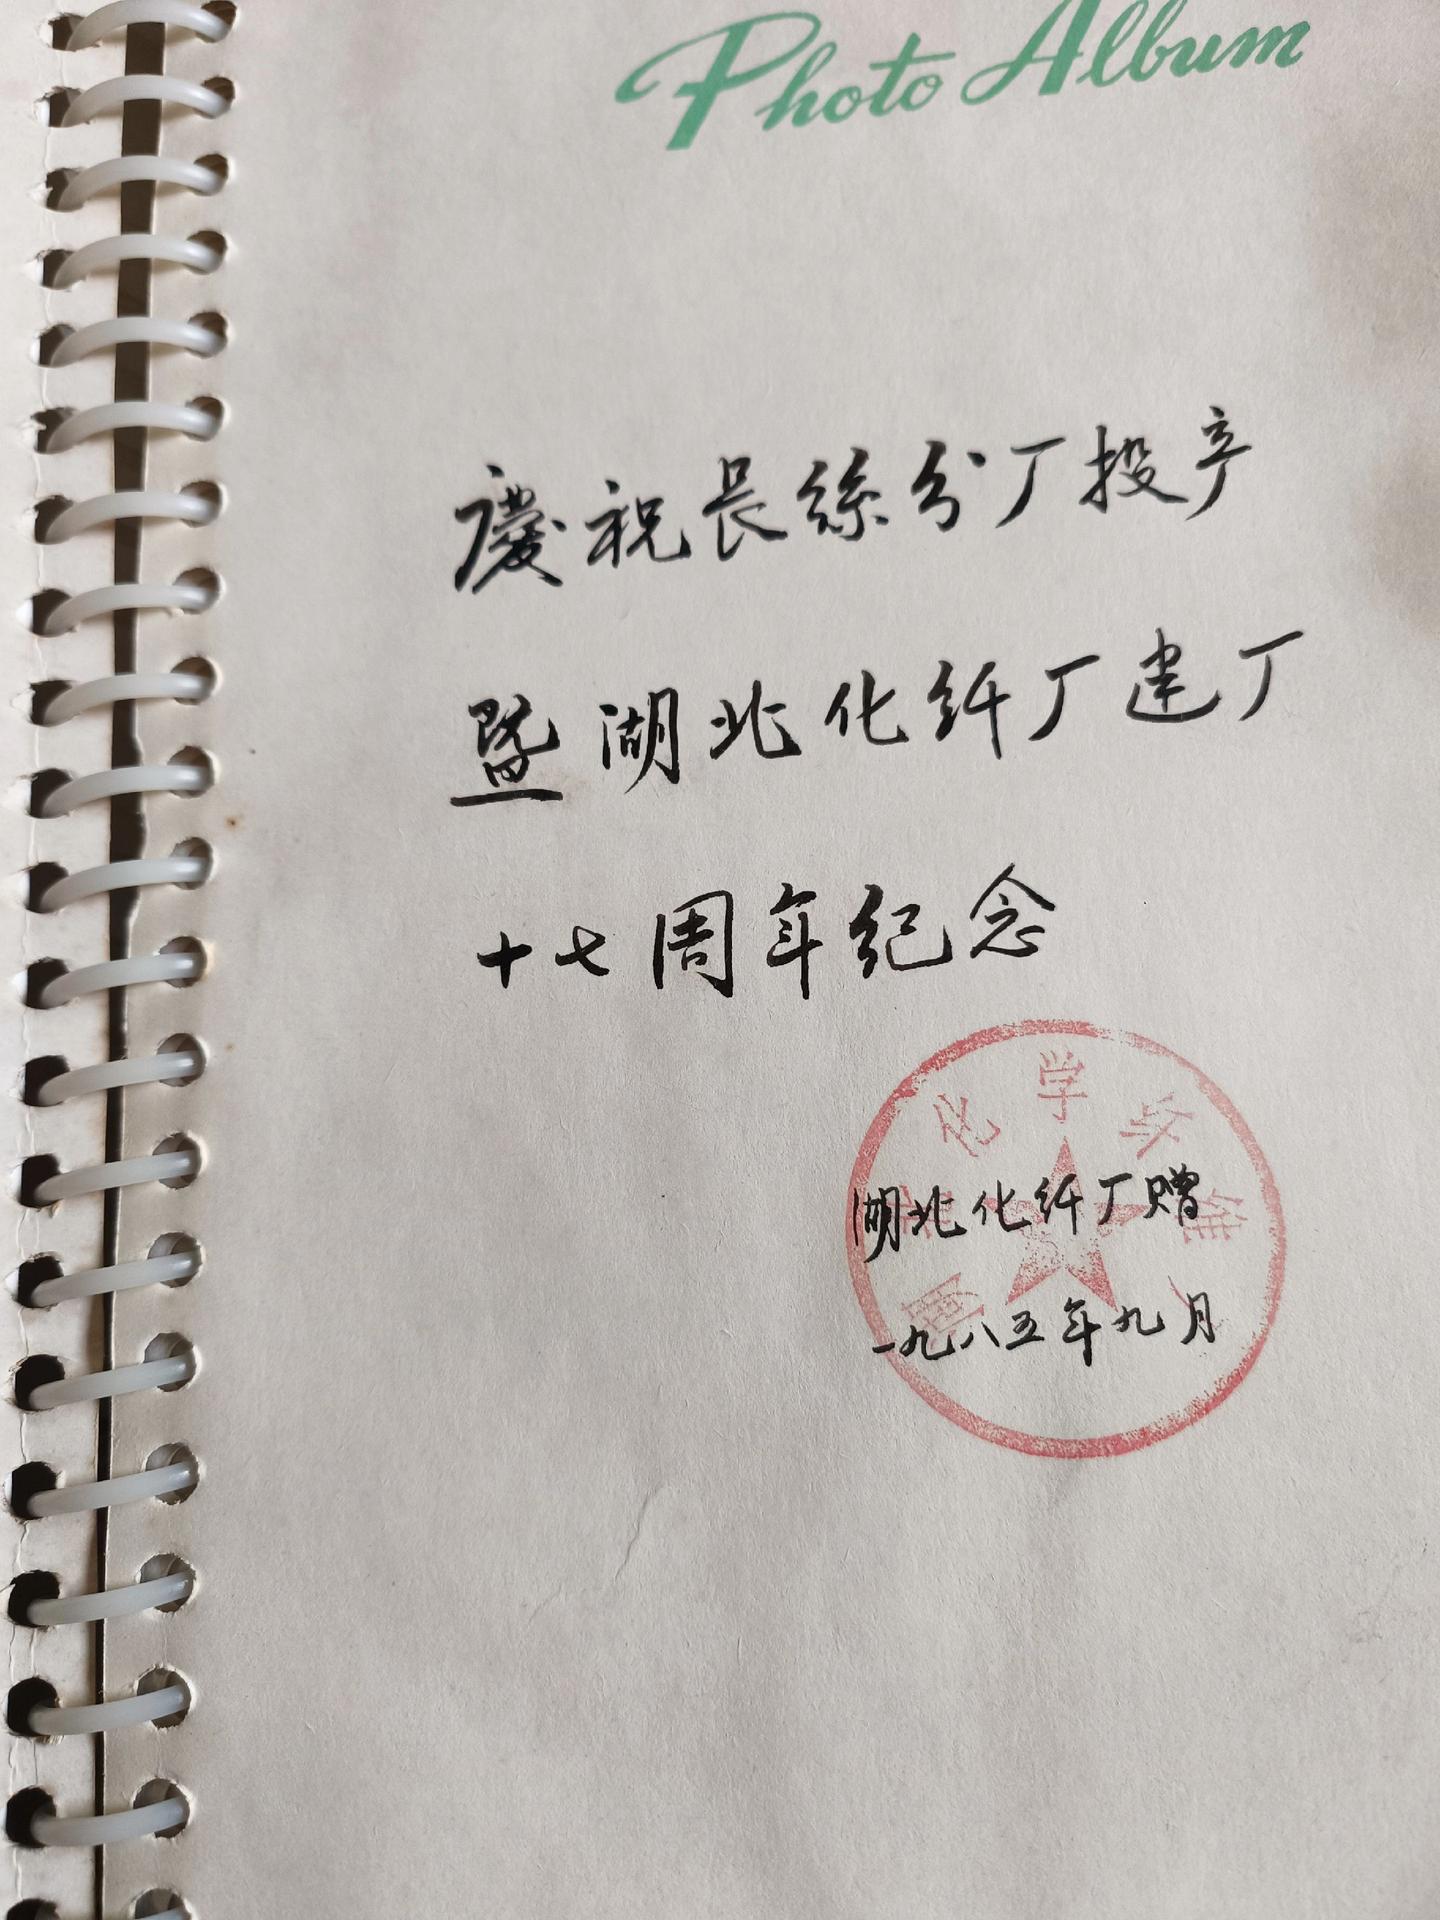 Photo Album
慶祝長絲分厂投产
暨湖北化纤厂建厂
十七周年纪念
化学纤维
湖北化纤厂赠
一九八五年九月